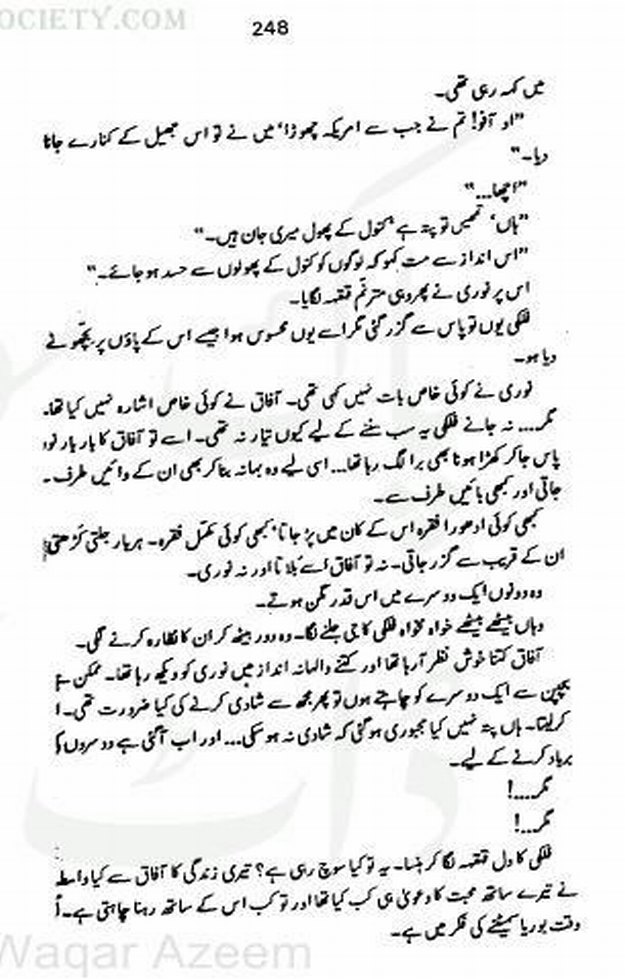 OCIETY.COM
248
میں کہہ رہی تھی۔
"او آفو! تم نے جب سے امریکہ چھوڑا' میں نے تو اس جھیل کے کنارے جانا
دیا۔"
"اچھا..."
"ہاں' تمہیں تو پتہ ہے' کنول کے پھول میری جان ہیں۔"
"اس انداز سے مت کہو کہ لوگوں کو کنول کے پھولوں سے حسد ہو جائے۔"
اس پر نوری نے پھر وہی مترنم قہقہہ لگایا۔
فلکی یوں تو پاس سے گزر گئی مگر اسے یوں محسوس ہوا جیسے اس کے پاؤں پر بچھو نے
دیا ہو۔
نوری نے کوئی خاص بات نہیں کہی تھی۔ آفاق نے کوئی خاص اشارہ نہیں کیا تھا۔
مگر... نہ جانے فلکی یہ سب سننے کے لیے کیوں تیار نہ تھی۔ اسے تو آفاق کا بار بار
پاس جا کر کھڑا ہونا بھی برا لگ رہا تھا... اسی لیے وہ بہانہ بنا کر بھی ان کے دائیں طرف۔
جاتی اور کبھی بائیں طرف سے۔
کبھی کوئی ادھورا فقرہ اس کے کان میں پڑ جاتا' کبھی کوئی مکمل فقرہ۔ ہر بار جلتی کڑھتی
ان کے قریب سے گزر جاتی۔ نہ تو آفاق اُسے بُلاتا اور نہ نوری۔
وہ دونوں ایک دوسرے میں اس قدر مگن ہوتے۔
وہاں بیٹھے بیٹھے خواہ مخواہ فلکی کا جی جلنے لگا۔ وہ دور بیٹھ کر ان کا نظارہ کرنے لگی۔
آفاق کتنا خوش نظر آ رہا تھا اور کتنے والہانہ انداز میں نوری کو دیکھ رہا تھا۔ ممکن ہے
بچپن سے ایک دوسرے کو چاہتے ہوں تو پھر مجھ سے شادی کرنے کی کیا ضرورت تھی۔
کر لیتا۔ ہاں پتہ نہیں کیا مجبوری ہو گئی کہ شادی نہ ہو سکی... اور اب آ گئی ہے دوسروں
برباد کرنے کے لیے۔
مگر...!
مگر...!
فلکی کا دل قہقہہ لگا کر ہنسا۔ یہ تو کیا سوچ رہی ہے؟ تیری زندگی کا آفاق سے کیا واسطہ
نے تیرے ساتھ محبت کا دعویٰ ہی کب کیا تھا اور تو کب اس کے ساتھ رہنا چاہتی ہے۔
وقت بوریا سمیٹنے کی فکر میں ہے۔
Waqar Azeem